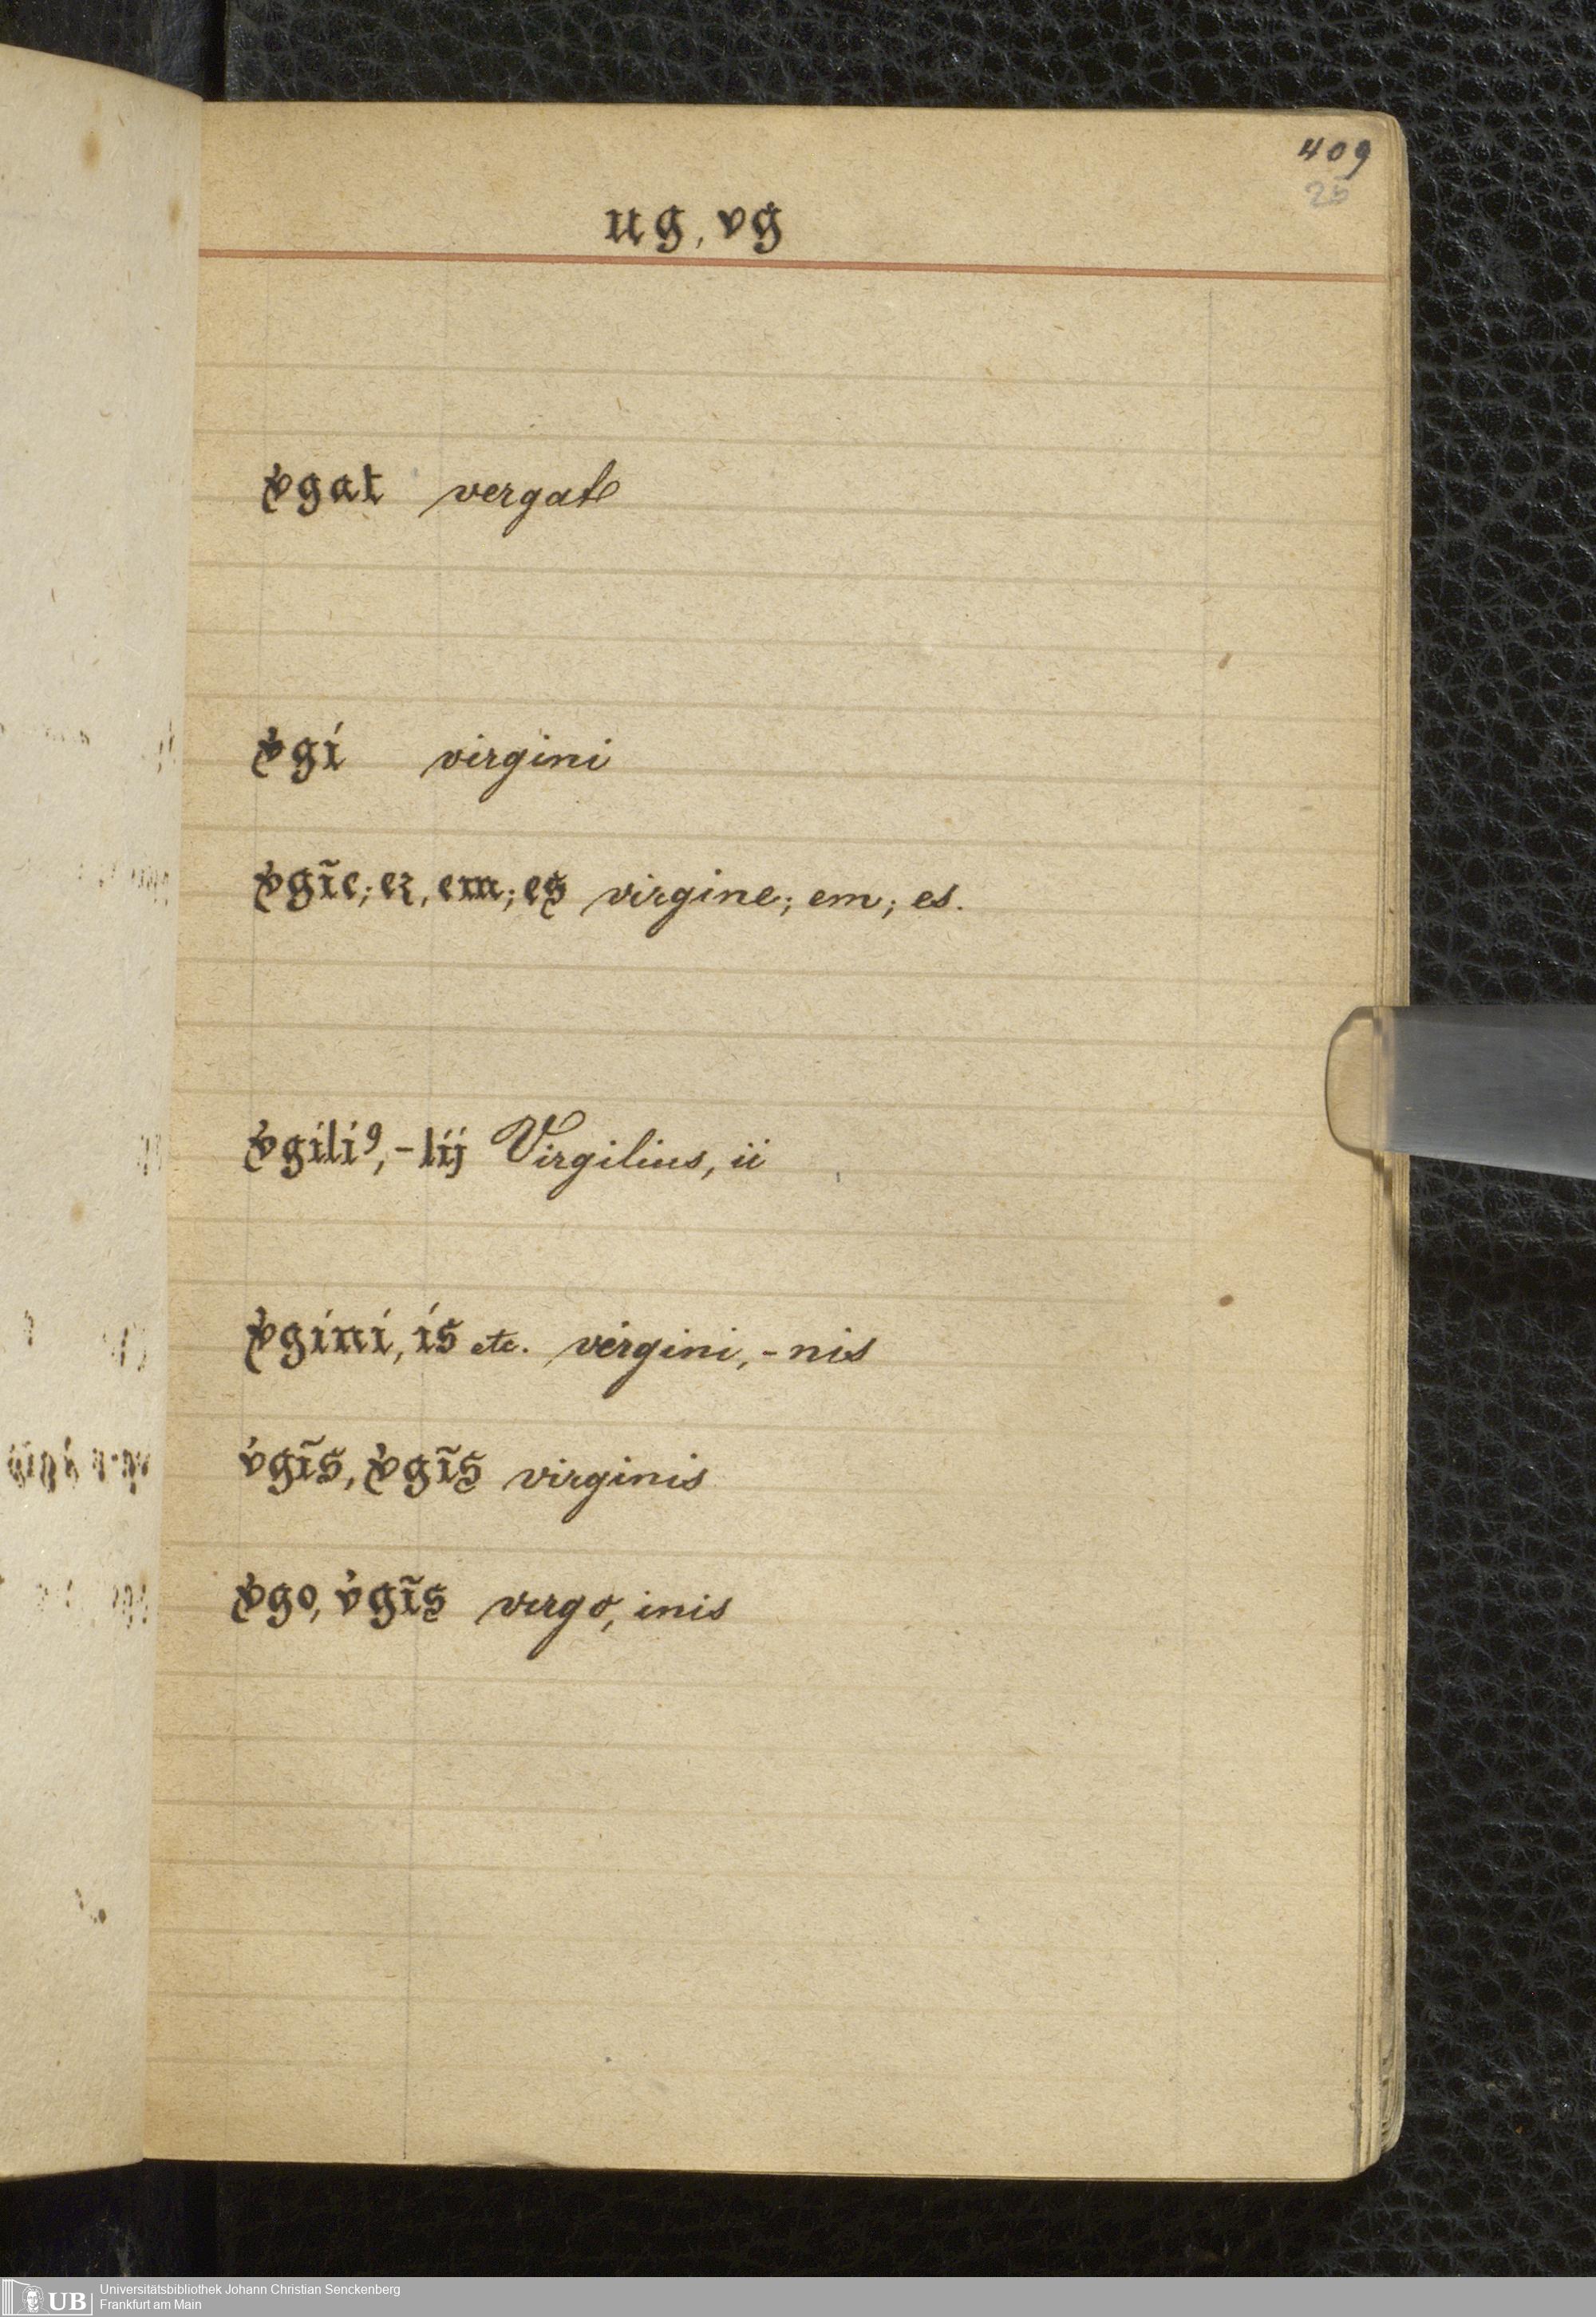 409
25
ug, vg
v̓gat vergat
v̓gi virgini
v̓gīe; eꝛ, em; es virgine; em; es.
v̓gili⁹, -lij Virgilius, ii
v̓gini, is etc. virgini, -nis
v̓gīs, v̓gīs virginis
v̓go, v̓gīs virgo, inis
UB Universitätsbibliothek Johann Christian Senckenberg
Frankfurt am Main